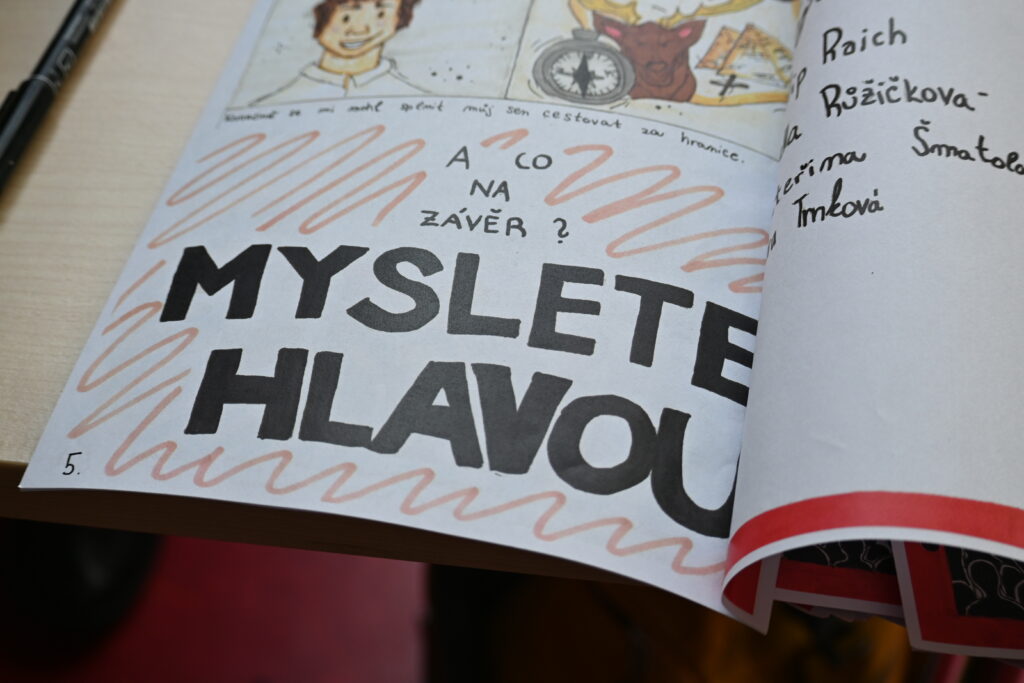 se mi mohl splnit můj sen cestovat za hranice.
A CO
NA
ZÁVĚR ?
MYSLETE
HLAVOU
5.
Raich
Růžičkova-
Šmatola
Trnková